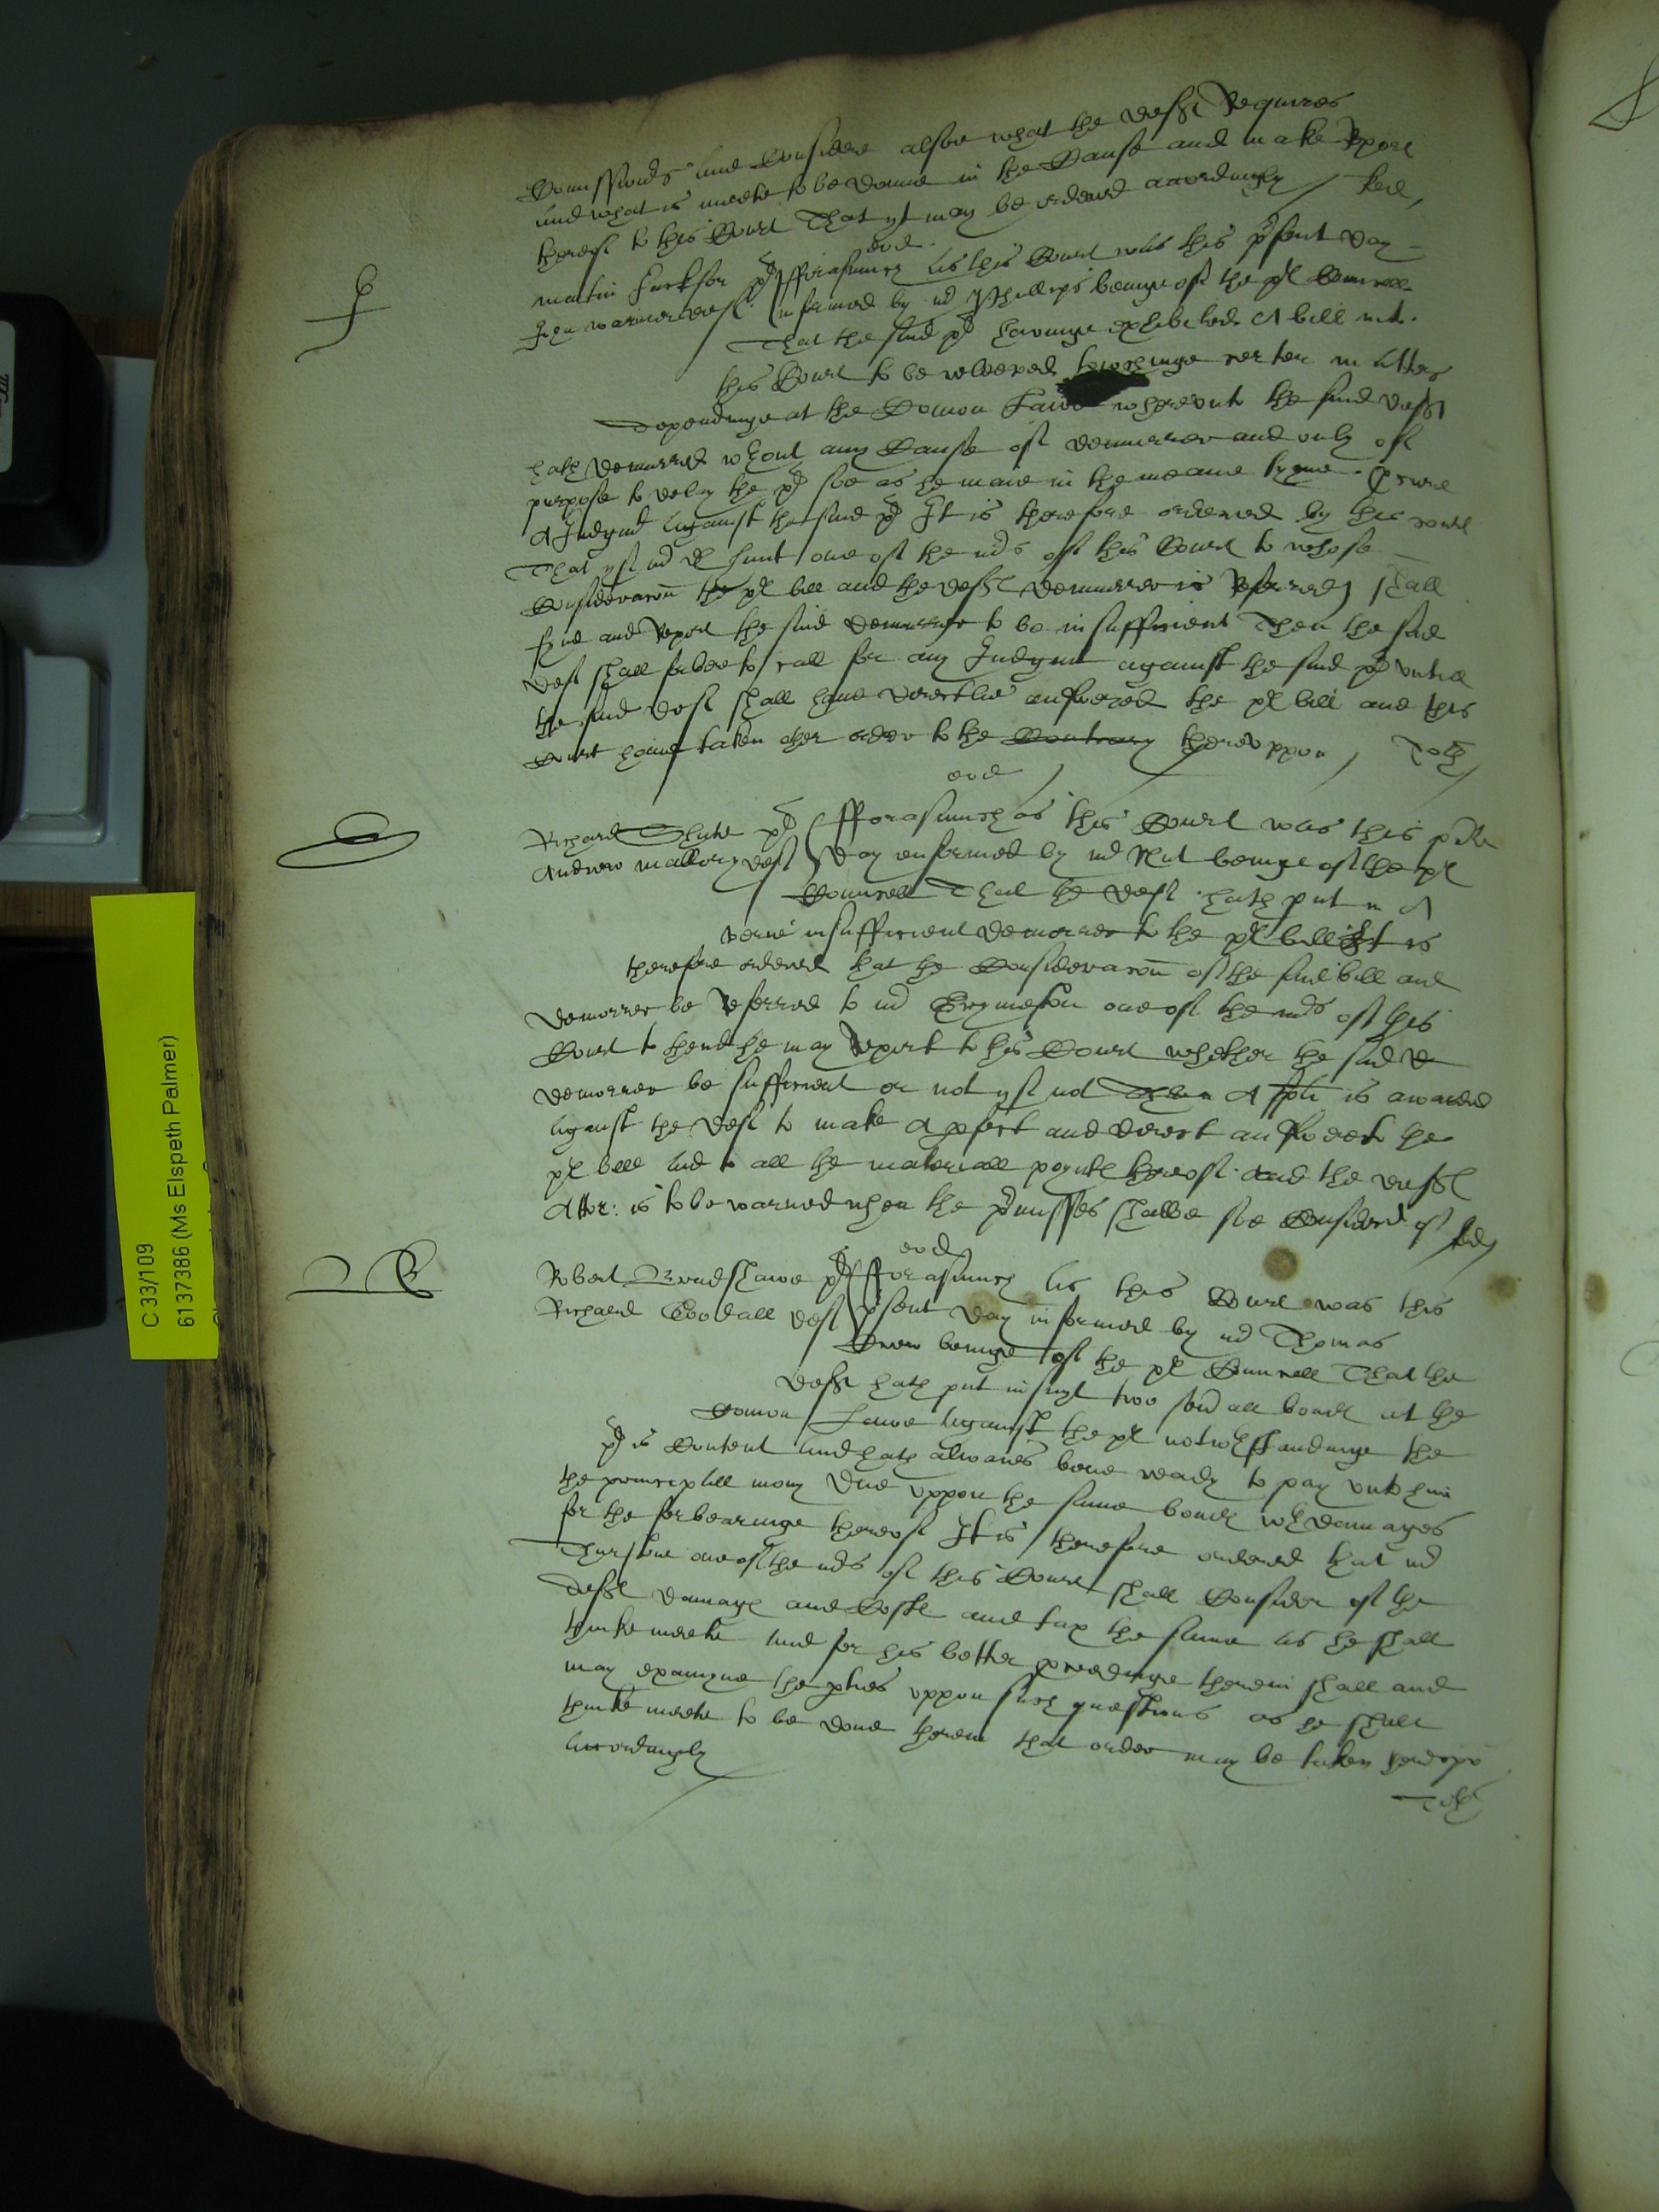 Comissions and Consider alsoe what the deft Requires
and what is meete to be donne in the Cause and make Report
thereof to this Court That yt may be ordered accordingly
eod
Martin Jackson pl fforasmuch as this Court was this pñt day
John warner deft informed by mr Phillips beinge of the pl Councell
That the said pl havinge exhibited A bill into
this Court to be releeved towchinge certen matters
Dependinge at the Comon Lawe whereunto the said deft
hath demurred wthout any Cause of demurrer and only of
purpose to delay the pl soe as he maie in the meane tyme procure
A Judgmt against the said pl It is therefore ordered by this court
That yf mr D hunt one of the mrs of this Court to whose
Consideracon the pl bill and the deft demurrer is Referred shall
fynd and Report the said demurrer to be insufficient Then the said
deft shall forbeare to call for any Judgmt against the said pl untill
the said deft shall have directlie answered the pl bill and this
Court have taken other order to the Contrary thereuppon
eod
Richard Shute pl fforasmuch as this Court was this pñte
Andrew mallory deft day enformed by mr beinge of the pl
Councell That the deft hath put in A
verie insufficient demorrer to the pl bill It is
therefore ordered that the Consideracon of the said bill and
demorrer be Referred to mr one of the mrs of this
Court to thend he may Report to this Court whether the said de
demorrer be sufficient or not yf not Then A spa is awarded
against the deft to make A pfect and direct answere to the
pl bill and to all the materiall poynts thereof And the deft
Attor: is to be warned when the pmisses shalbe soe Considered of
eod
Robert Bradshawe pl fforasmuch as this Court was this
Richard Goodall deft psent day informed by mr Thomas
Drew beinge of the pl Councell That the
deft hath put in suyt two seuall bonds at the
Comon Lawe against the pl notwthstandinge the
pl is Content and hath alwaies bene ready to pay unto him
the principall mony due uppon the same bonds wth damages
for the forbearinge thereof It is therefore ordered that mr
one of the mrs of this Court shall Consider of the
deft damage and Coste and tax the same as he shall
thinke meete And for his better proceedinge therein shall and
may examyne the pties uppon such questions as he shall
thinke meete to be done therein that order may be taken
accordingly
C 33/109
6137386 (Ms Elspeth Palmer)